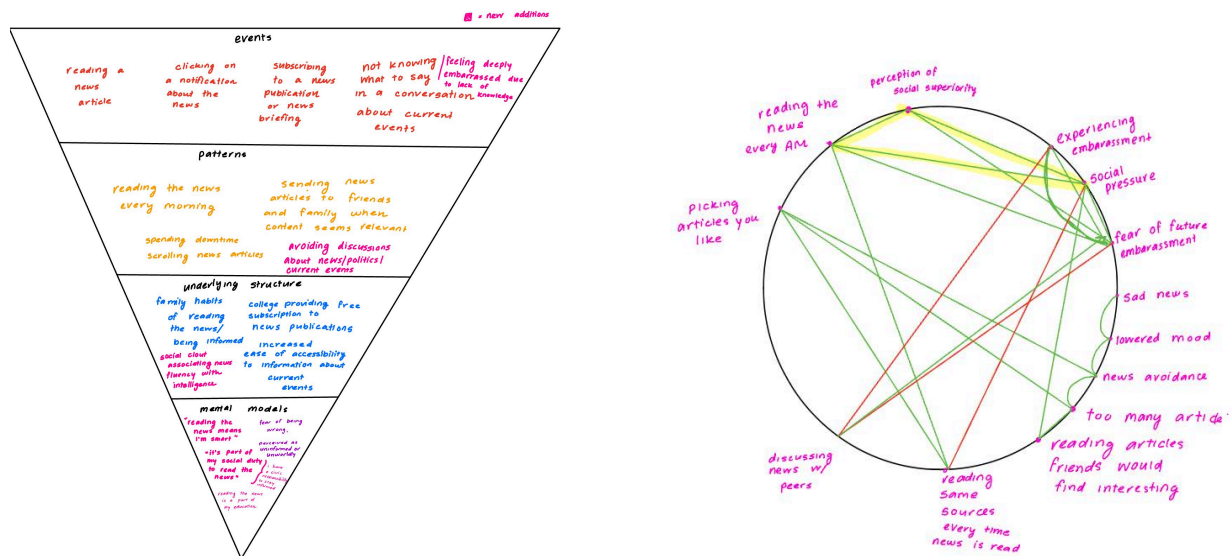 = new additions
events
reading a
news
article
clicking on
a notification
about the
news
subscribing
to a news
publication
or news
briefing
not knowing
what to say
in a conversation
about current
events
feeling deeply
embarrassed due
to lack of
knowledge
patterns
reading the news
every morning
sending news
articles to friends
and family when
content seems relevant
spending downtime
scrolling news articles
avoiding discussions
about news/politics/
current events
underlying structure
family habits
of reading
the news/
being informed
college providing free
subscription to
news publications
social clout
associating news
fluency with
intelligence
increased
ease of accessibility
to information about
current
events
mental models
"reading the
news means
I'm smart"
fear of being
wrong,
perceived as
uninformed or
unworldly
"it's part of
my social duty
to read the
news"
i have
a civic
responsibility
to stay
informed
reading the news
is a part of
my education
perception of
social superiority
reading the
news
every AM
experiencing
embarassment
social
pressure
picking
articles you
like
fear of future
embarassment
sad news
lowered mood
news avoidance
too many article
reading articles
friends would
find interesting
discussing
news w/
peers
reading
same
sources
every time
news is read